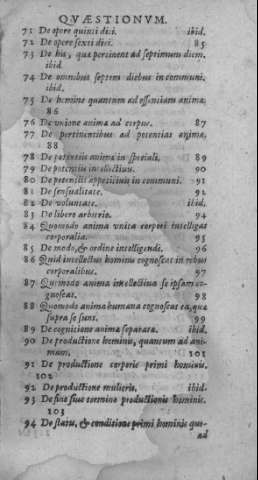 QVÆSTIONVM.
71 De opere quinti diei. ibid.
72 De opere sexti diei. 85
73 De his, quæ pertinent ad septimum diem.
ibid.
74 De omnibus septem diebus in communi.
ibid.
75 De homine quantum ad essentiam animæ,
86
76 De vnione animæ ad corpus. 87
77 De pertinentibus ad potentias animæ,
88
78 De potentiis animæ in speciali. 89
79 De potentiis intellectiuis. 90
80 De potentiis appetitiuis in communi. 91
81 De sensualitate. 92
82 De voluntate. ibid.
83 De libero arbitrio. 94
84 Quomodo anima vnita corpori intelligat
corporalia. 95
85 De modo, & ordine intelligendi. 96
86 Quid intellectus hominis cognoscat in rebus
corporalibus. 97
87 Quomodo anima intellectiua se ipsam co-
gnoscat. 98
88 Quomodo anima humana cognoscat ea, quæ
supra se sunt. 99
89 De cognitione animæ separatæ. ibid.
90 De productione hominis, quantum ad ani-
mam. 101
91 De productione corporis primi hominis.
102
92 De productione mulieris. ibid.
93 De fine siue termino productionis hominis.
103
94 De statu, & conditione primi hominis quo-
ad